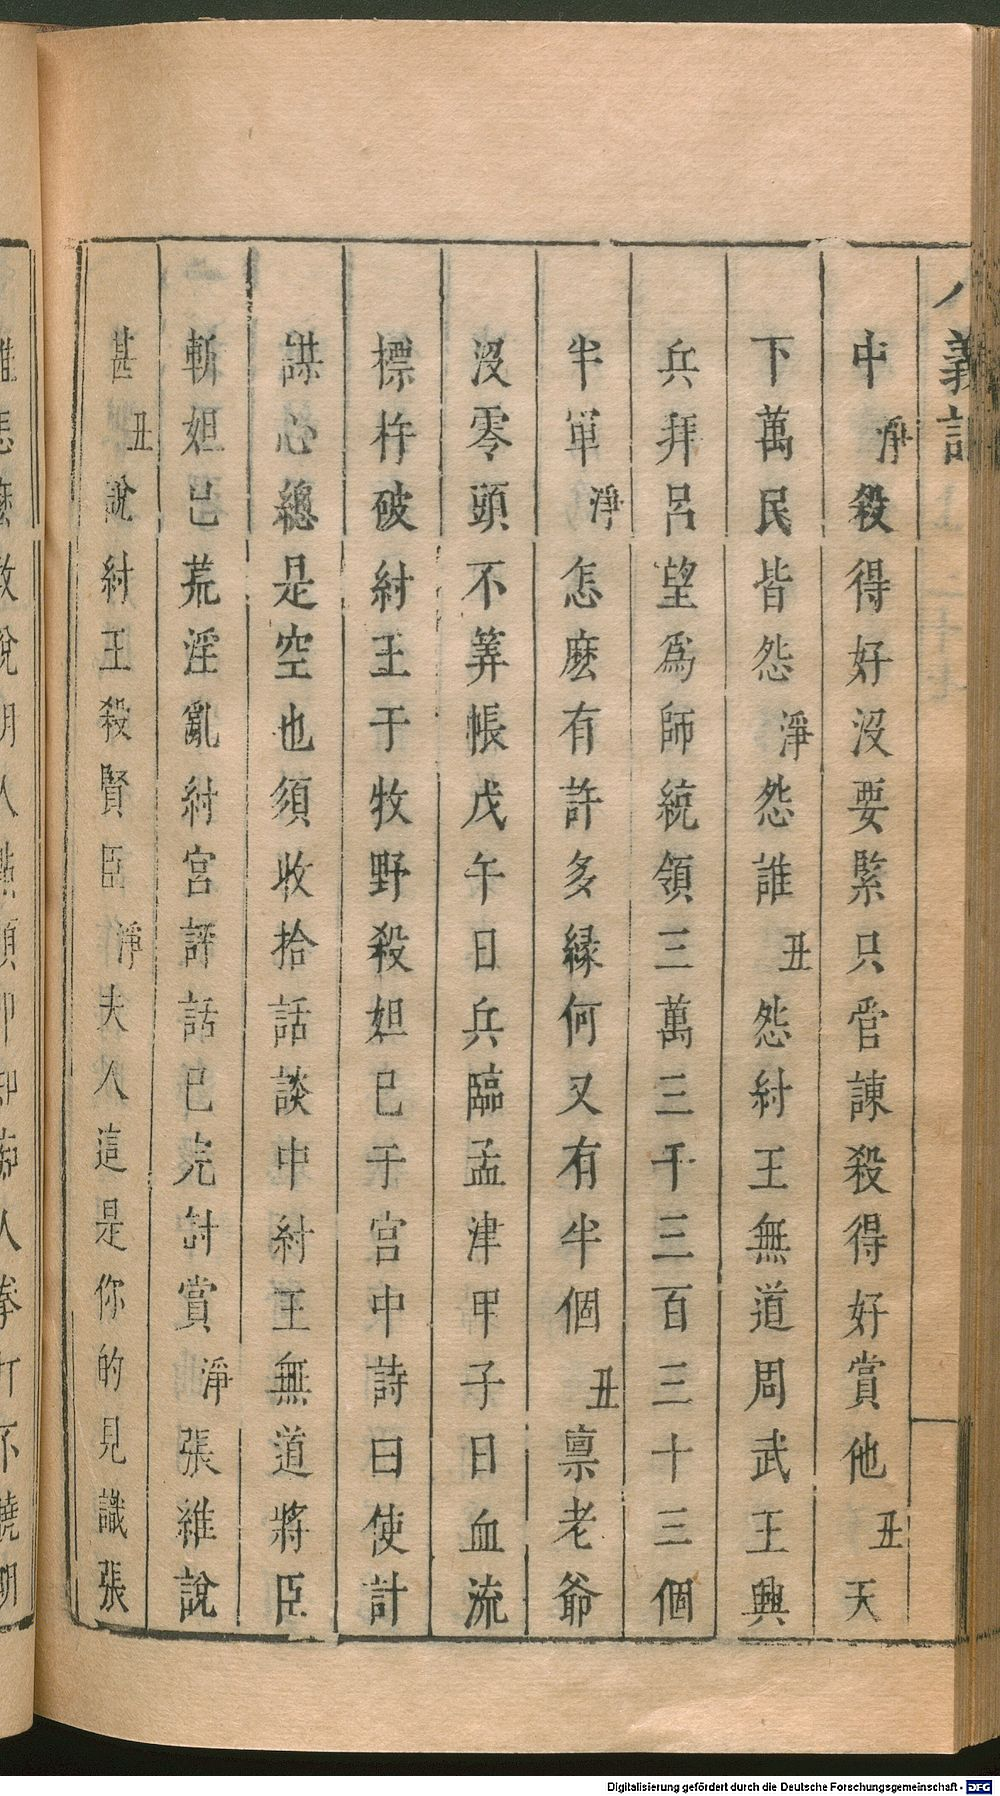 八義記
中淨殺得好沒要緊只管諫殺得好賞他丑天
下萬民皆怨淨怨誰丑怨紂王無道周武王興
兵拜呂望爲師統領三萬三千三百三十三個
半軍淨怎麽有許多緣何又有半個丑禀老爺
沒零頭不筭帳戊午日兵臨孟津甲子日血流
標杵破紂王于牧野殺妲已于宮中詩曰使計
謀心總是空也須收拾話談中紂王無道將臣
斬妲已荒淫亂紂宮評話已完討賞淨張維說
甚丑說紂王殺賢臣淨夫人這是你的見識張
維怎麽敢說明人點頭即知痴人拳打不曉明
Digitalisierung gefördert durch die Deutsche Forschungsgemeinschaft - DFG